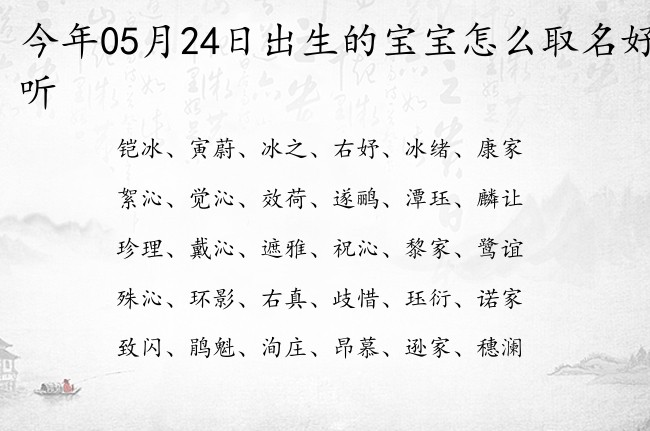 今年05月24日出生的宝宝怎么取名好
听
铠冰、寅蔚、冰之、右妤、冰绪、康家
絮沁、觉沁、效荷、遂鹂、潭珏、麟让
珍理、戴沁、遮雅、祝沁、黎家、鹭谊
殊沁、环影、右真、歧惜、珏衍、诺家
致闪、鹃魁、洵庄、昂慕、逊家、穗澜